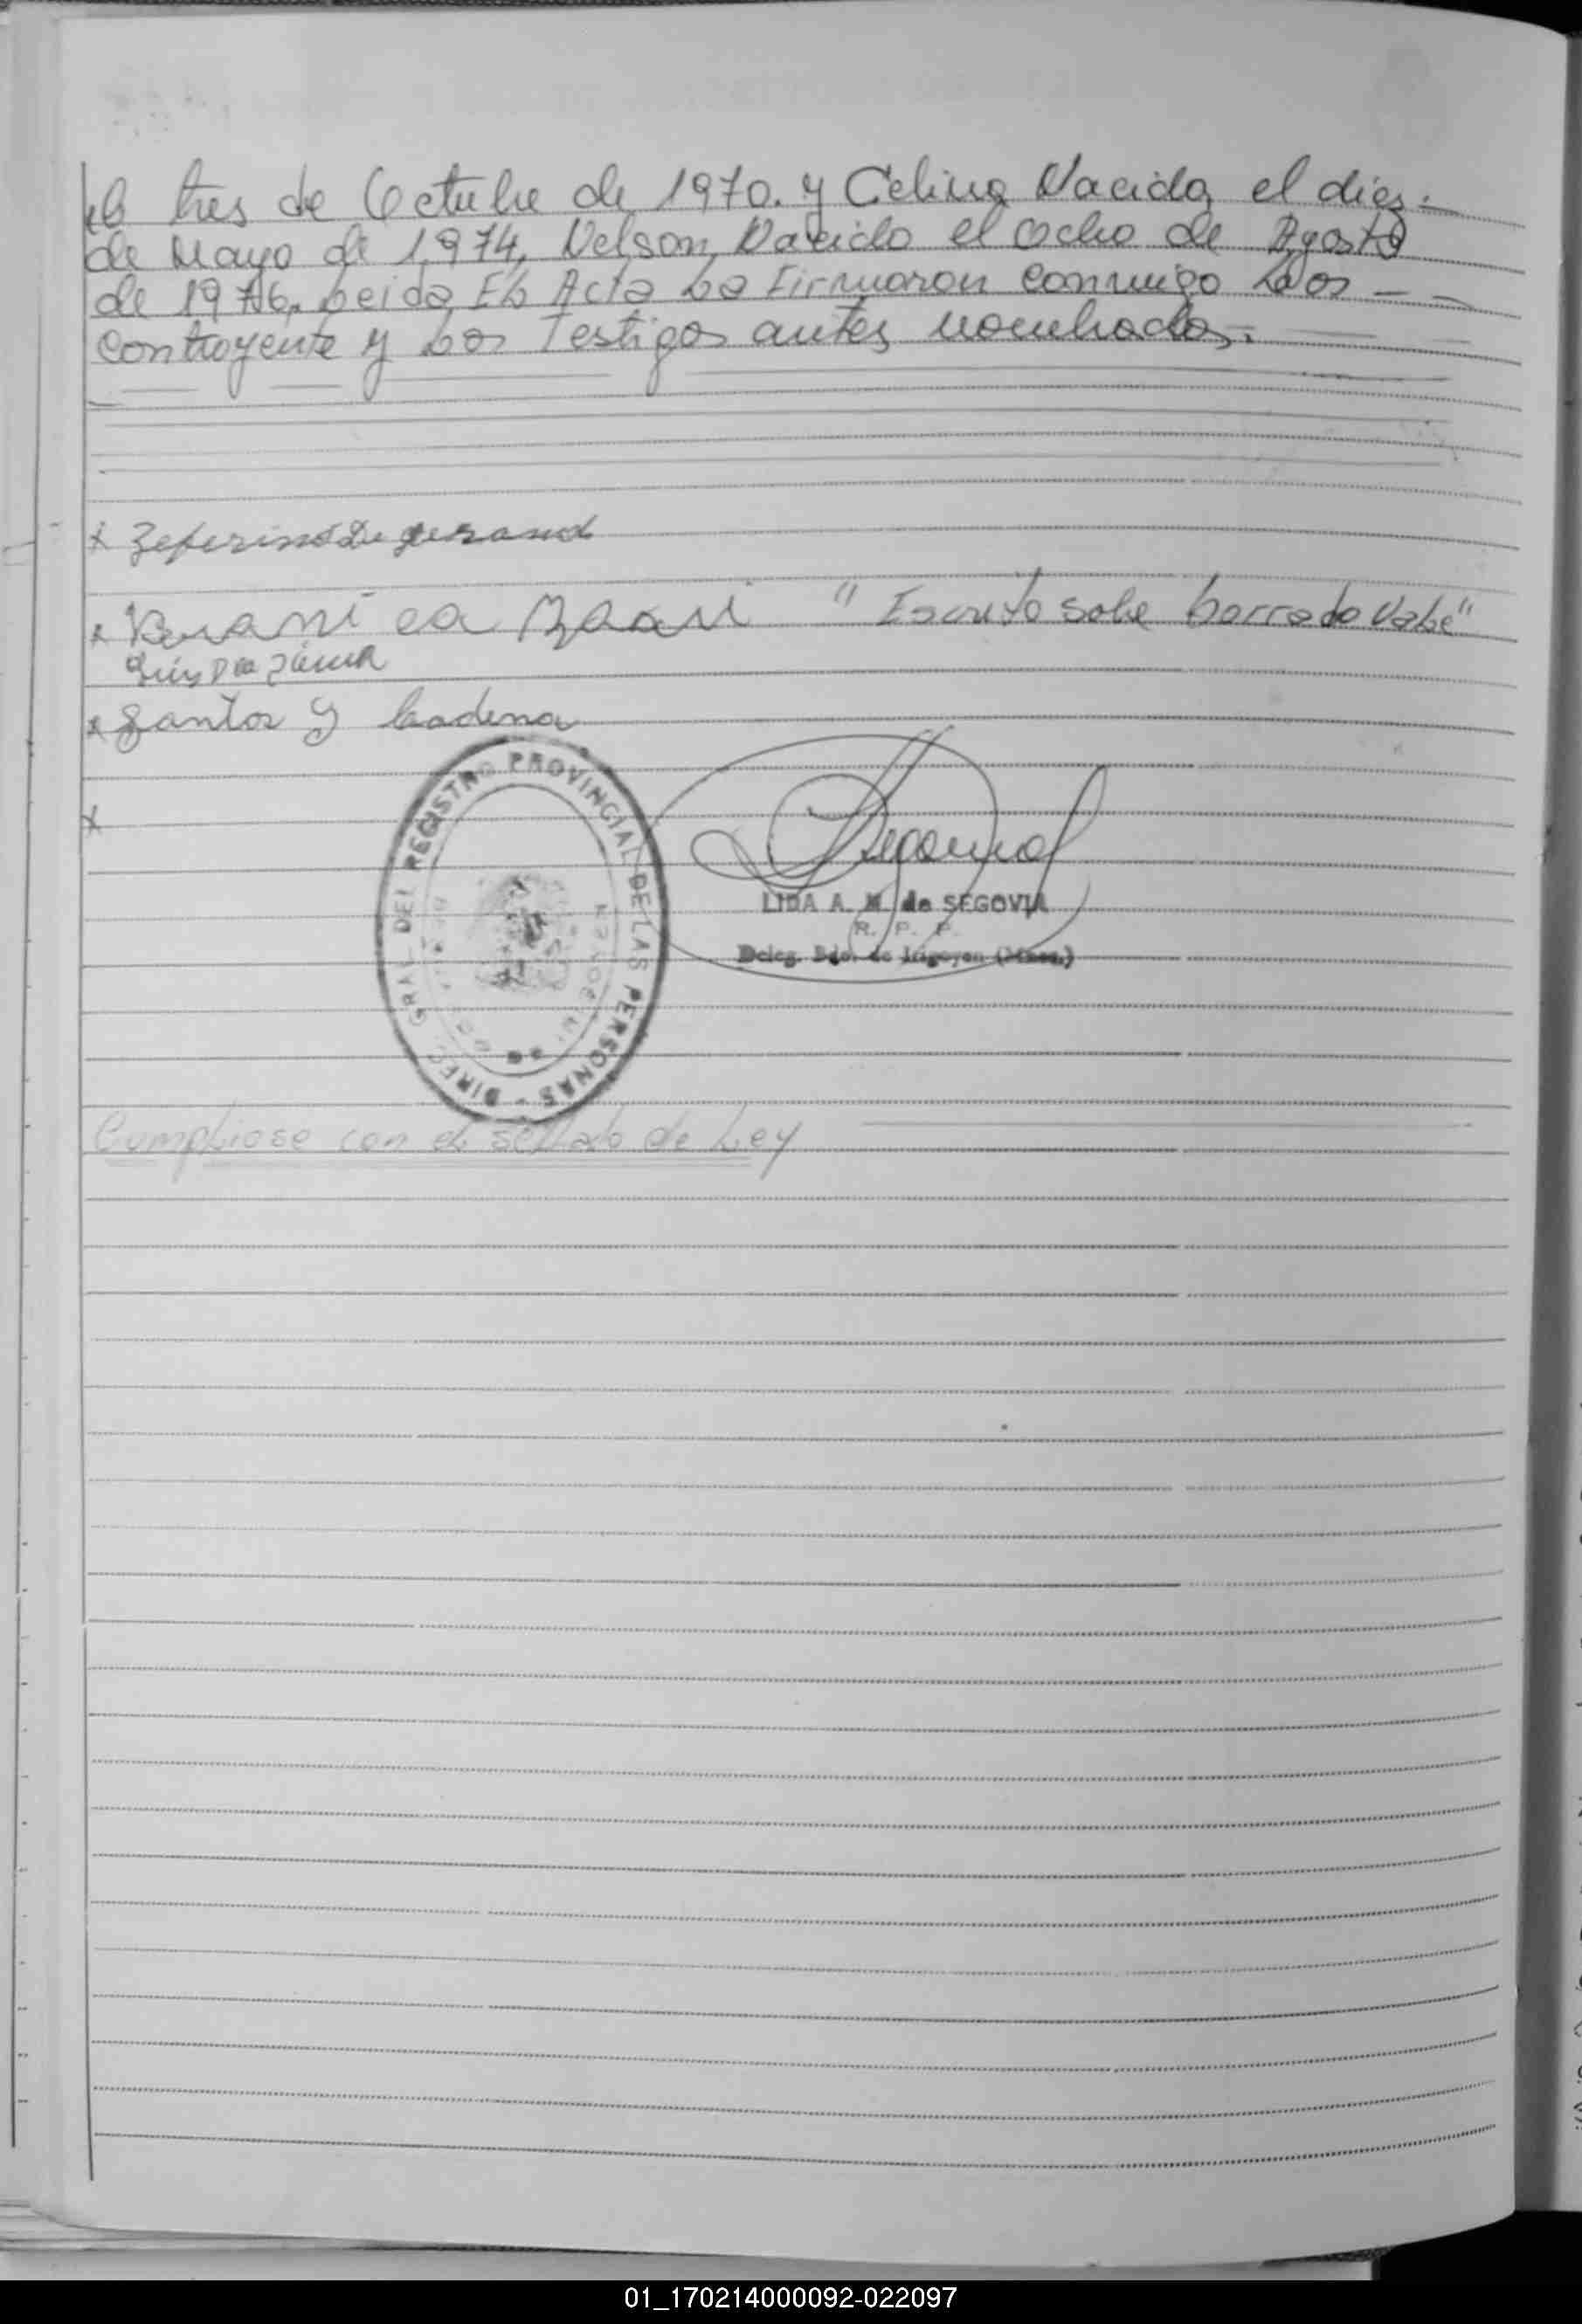 el tres de Octubre de 1970. y Celina Nacida el diez.—
de Mayo de 1,974, Nelson Nacido el ocho de Agosto
de 1976. Leida El Acta La Firmaron conmigo Los — —
contrayente y Los Testigos antes nombrados.
x Zeferino De
x "Escrito sobre borrado Vale"
x Santos y Cadena
x
DIREC. GRAL. DEL REGISTRO PROVINCIAL DE LAS PERSONAS -
LIDA A. M. de SEGOVIA
R. P. P.
Deleg. Bdo. de Irigoyen (Mnes.)
Cumpliose con el sellado de Ley
01_170214000092-022097